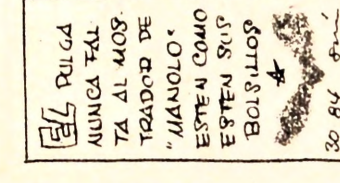 EL PULGA
NUNCA FAL
TA AL MOS.
TRADOR DE
"MANOLO".
ESTEN COMO
ESTEN SUS
BOLSILLOS
30 84